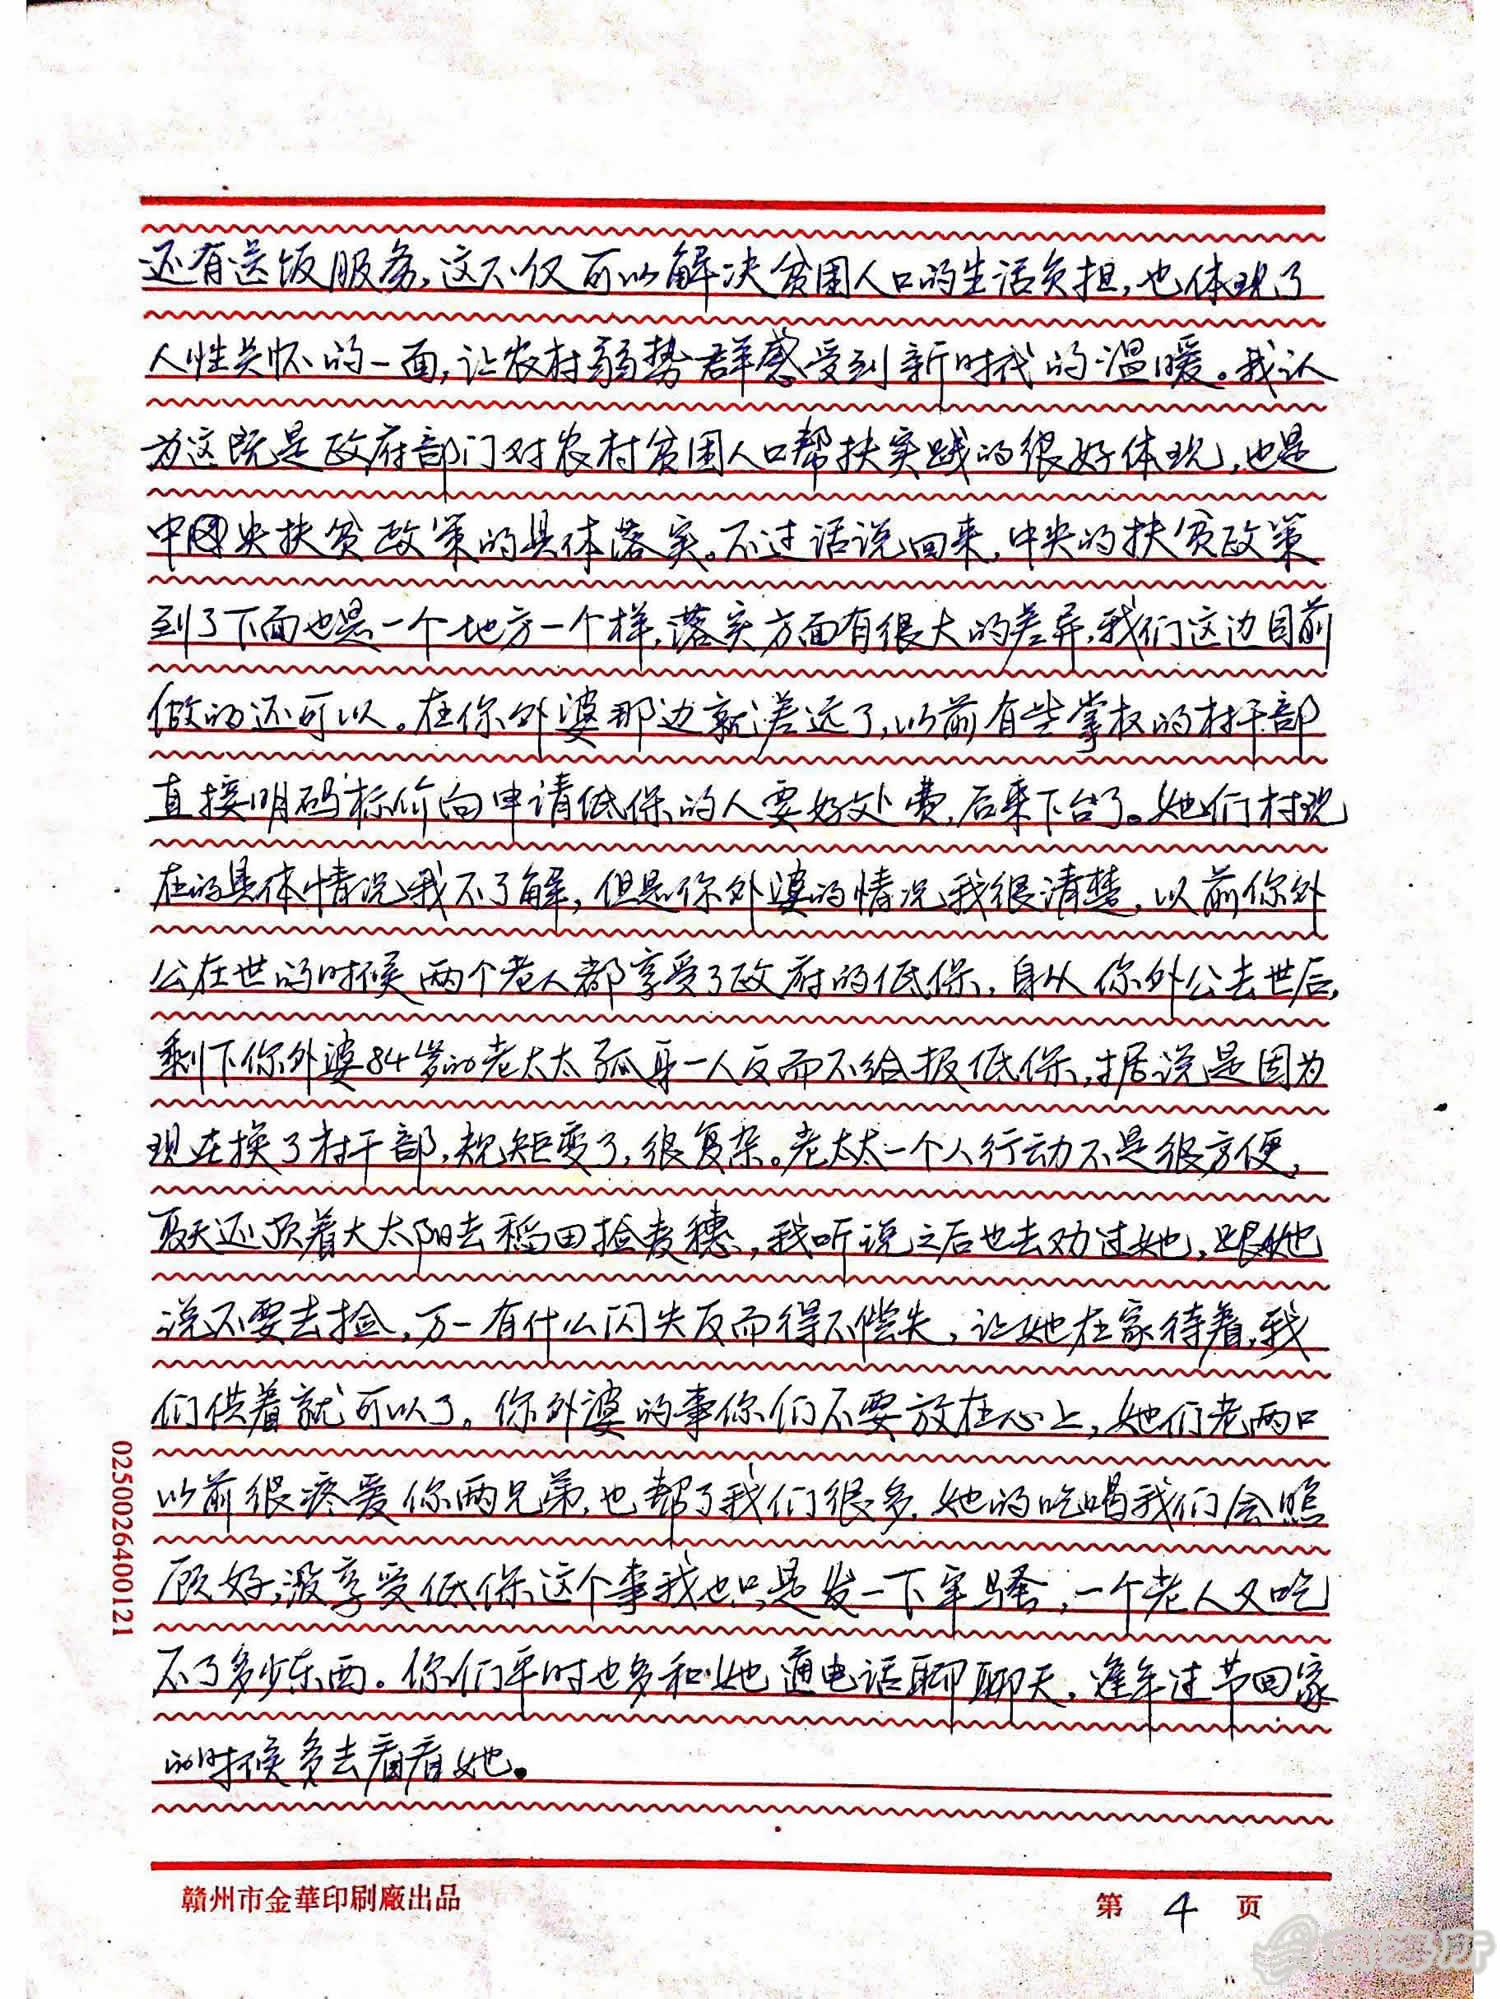 还有送饭服务,这不仅可以解决贫困人口的生活负担,也体现了
人性关怀的一面,让农村弱势群感受到新时代的温暖。我认
为这既是政府部门对农村贫困人口帮扶实践的很好体现,也是
中央扶贫政策的具体落实。不过话说回来,中央的扶贫政策
到了下面也是一个地方一个样,落实方面有很大的差异,我们这边目前
做的还可以。在你外婆那边就差远了,以前有些掌权的村干部
直接明码标价向申请低保的人要好处费,后来下台了。她们村现
在的具体情况我不了解,但是你外婆的情况我很清楚,以前你外
公在世的时候两个老人都享受了政府的低保,自从你外公去世后,
剩下你外婆84岁的老太太孤身一人反而不给报低保,据说是因为
现在换了村干部,规矩变了,很复杂。老太太一个人行动不是很方便,
夏天还顶着大太阳去稻田捡麦穗,我听说之后也去劝过她,跟她
说不要去捡,万一有什么闪失反而得不偿失,让她在家待着,我
们供着就可以了。你外婆的事你们不要放在心上,她们老两口
以前很疼爱你两兄弟,也帮了我们很多,她的吃喝我们会照
顾好,没享受低保这个事我也只是发一下牢骚,一个老人又吃
不了多少东西。你们平时也多和她通电话聊聊天,逢年过节回家
的时候多去看看她。
025002640 0121
赣州市金華印刷廠出品
第 4 页